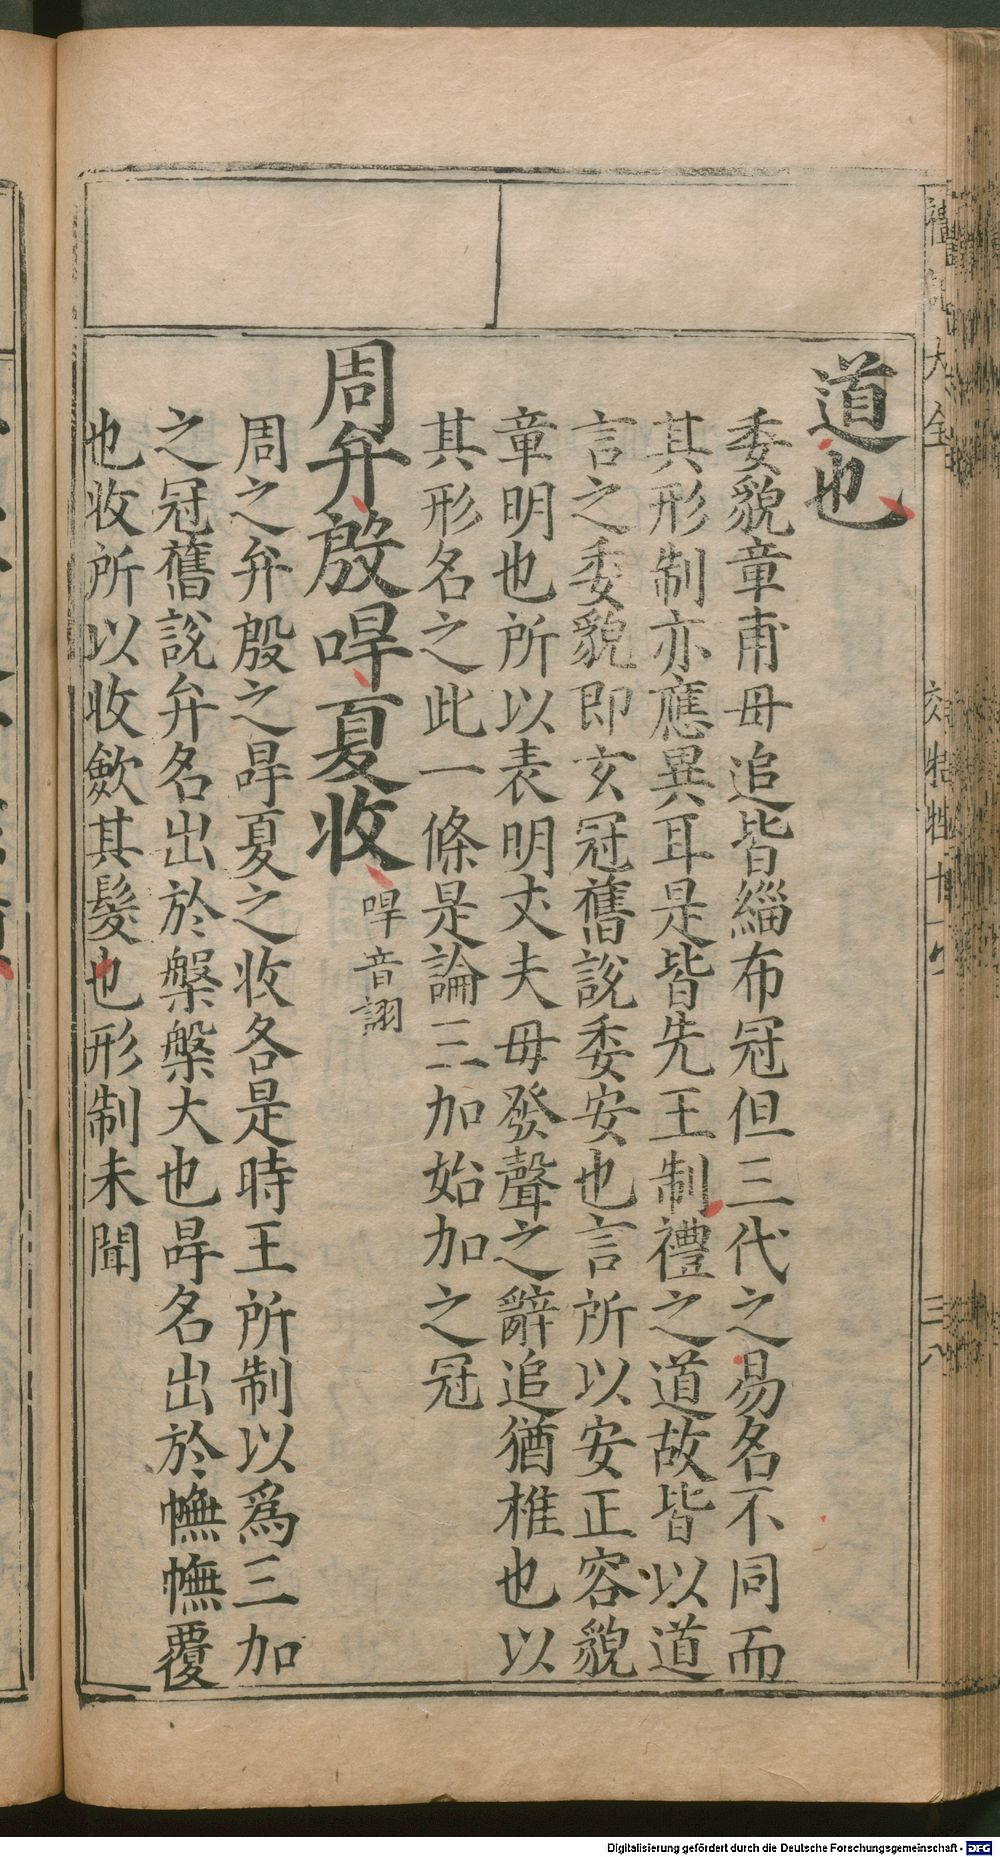 道也
委貌章甫毋追皆緇布冠但三代之易名不同而
其形制亦應異耳是皆先王制禮之道故皆以道
言之委貌即玄冠舊說委安也言所以安正容貌
章明也所以表明丈夫毋發聲之辭追猶椎也以
其形名之此一條是論三加始加之冠
周弁殷哻夏收哻音詡
周之弁殷之冔夏之收各是時王所制以爲三加
之冠舊說弁名出於槃槃大也冔名出於幠幠覆
也收所以收歛其髮也形制未聞
大全
郊特牲十一
三八
Digitalisierung gefördert durch die Deutsche Forschungsgemeinschaft - DFG